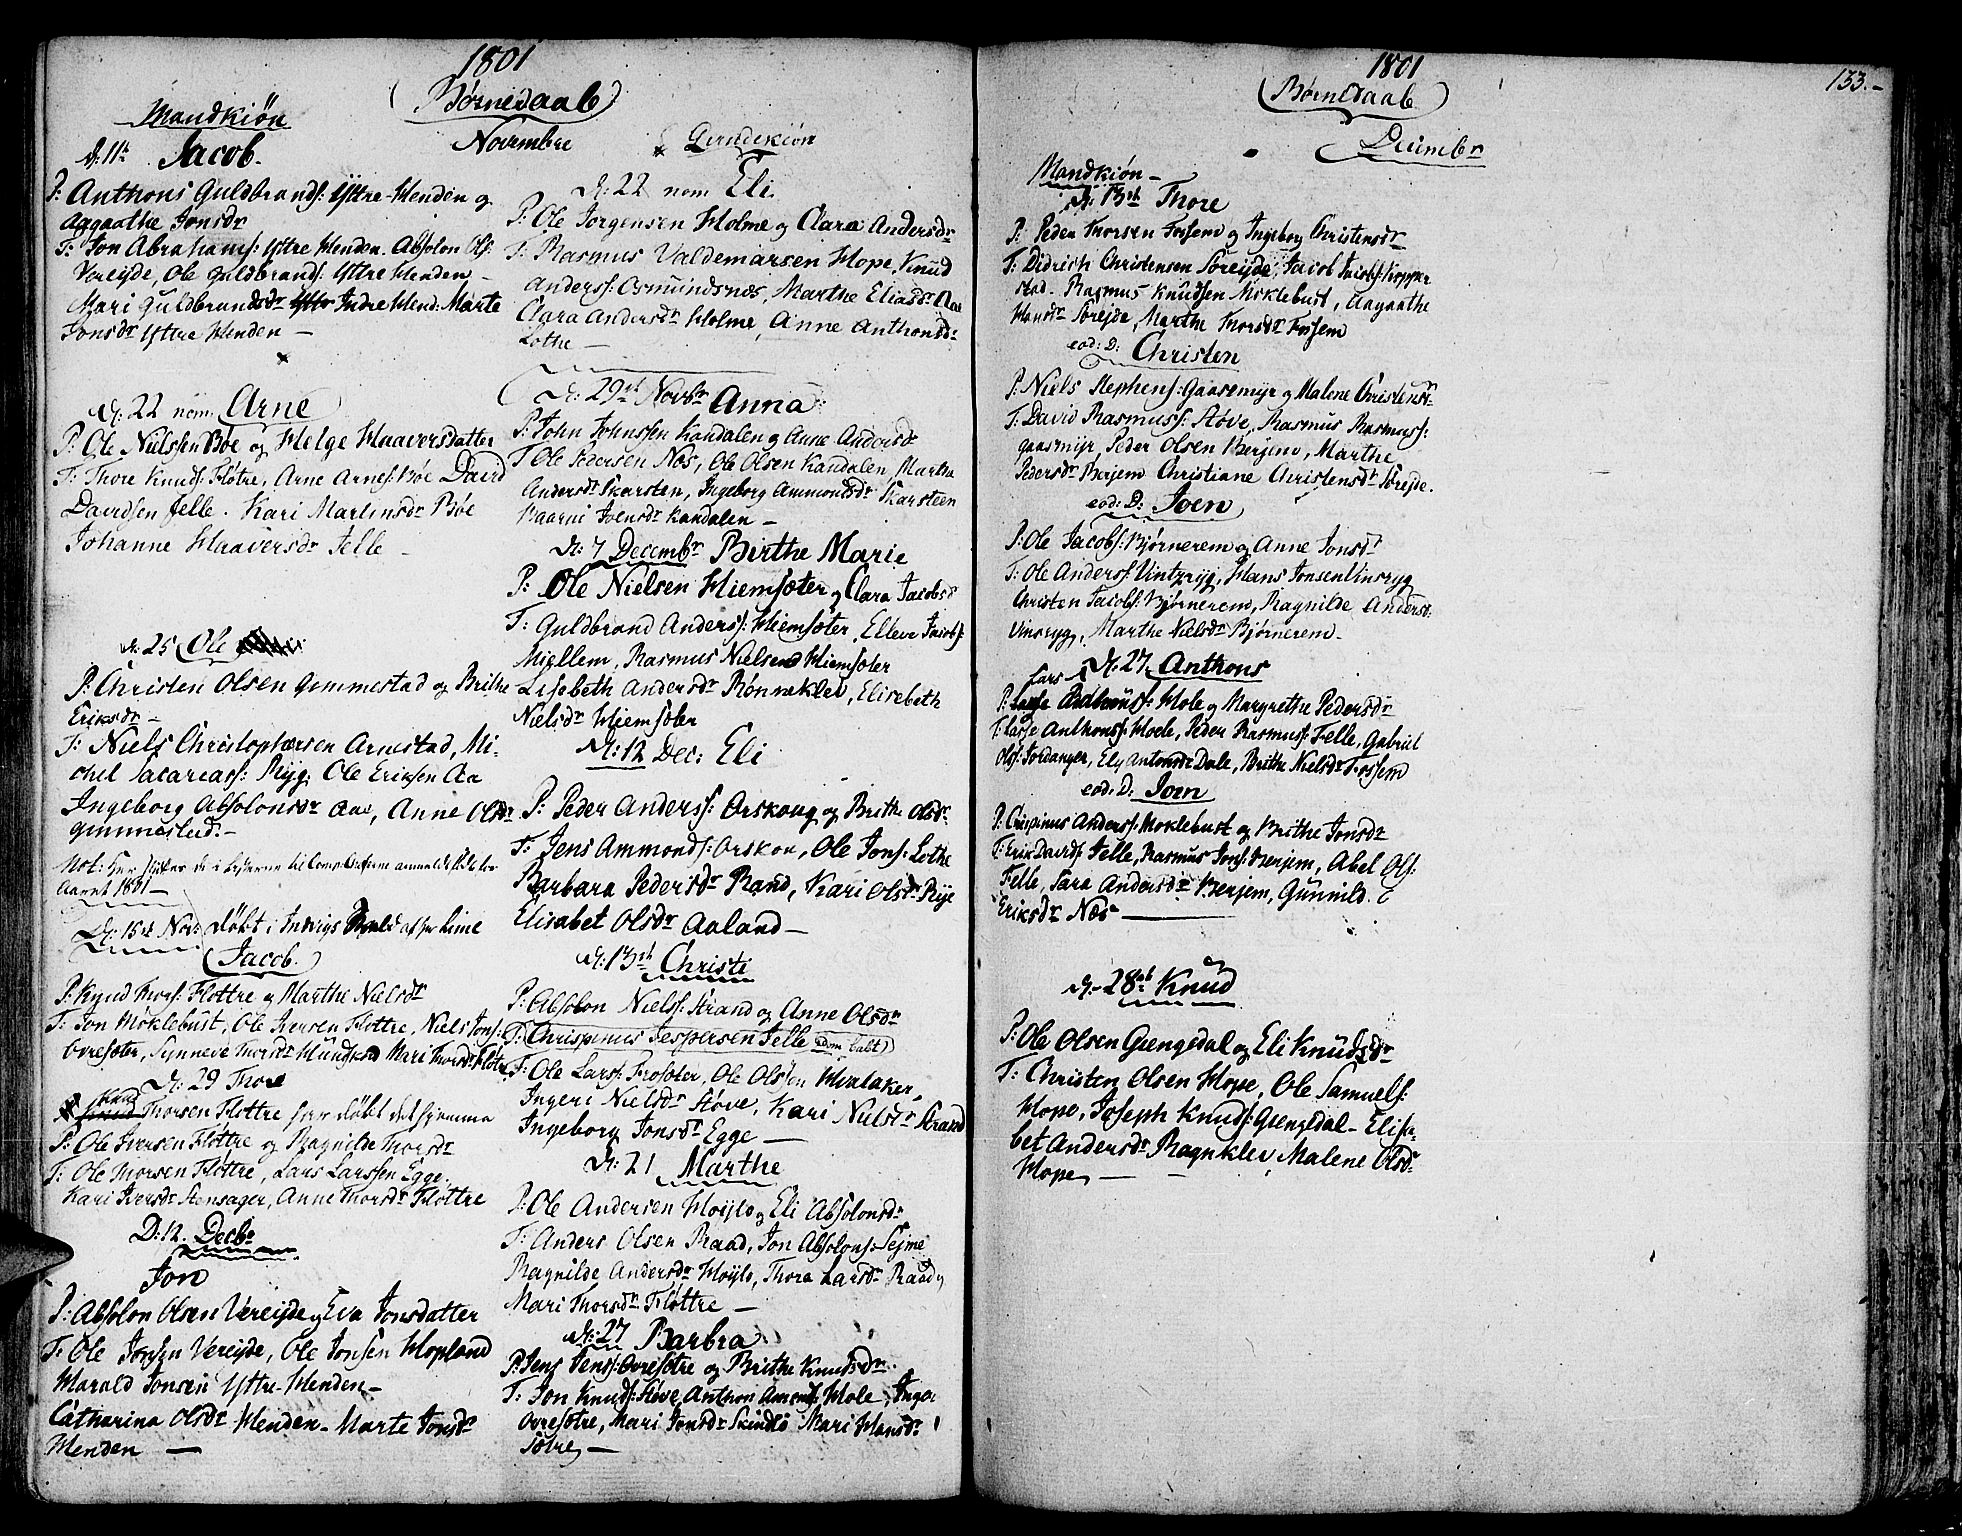 1801
Børnedaab
Novembre
Mandkiøn
D: 11te Jacob.
P: Anthons Guldbrands: Yttre-Henden og
Aggaathe Jonsdr
F: Jon Abrahams: Yttre Henden. Absolon Ols:
Vereijde, Ole Guldbrands: Yttre Henden
Mari Guldbrandsdr Indre Hend: Marte
Jonsdr Yttre Henden —
D: 22 nom. Arne
P: Ole Nielssen Bøe og Helge Haaversdatter
F: Thore Knuds: Fløtre, Arne Arnes: Bøe David
Davidsen Felle. Kari Martinsdr Bøe
Johanne Haaversdr Felle —
D: 25 Ole
P: Christen Olsen Gemmestad og Brithe
Eriksdr —
F: Niels Christophersen Arnestad, Mi-
chel Sacariass: Ryg, Ole Eriksen Aa
Ingeborg Absolonsdr Aae, Anne Olsdr
Gimmestad. —
Aaret 1801 —
D: 15de Nov: døbt i Indvigs af hr Lime
Jacob.
P: Knud Thors: Fløttre og Marthe Nielsdr
F: Jon Møklebust, Ole Iversen Fløttre, Niels Jons:
Øvresæter, Synneve Thorsdr Hundskod Mari Thorsdr Fløtre
D: 29 Thore
Knud Thorsen Fløttre har døbt det hjemma
P: Ole Iversen Fløttre og Ragnilde Thorsdr
F: Ole Thorsen Fløttre, Lars Larssen Egge.
Kari Iversdr Stensager, Anne Thorsdr Fløttre
D: 12. Decbr
Jon
P: Absolon Olsen Vereijde og Eva Jonsdatter
F: Ole Jonsen Vereijde, Ole Jonsen Hopland
Harald Jonsen Yttre-Henden —
Catharina Olsdr Henden. Marte Jonsdr
Henden —
Qvindekiøn
D: 22 nom Eli
P: Ole Jørgensen Holme og Clara Andersdr
F: Rasmus Valdemarsen Hope, Knud
Anderss: Osmundsnæs, Marthe Eliasdr Aae
Clara Andersdr Holme, Anne Anthonsd:
Lothe —
D: 29de Novbr Anna
P: John Johnssen Kandalen og Anne Andersdr
F Ole Pedersen Næs, Ole Olsen Kandalen, Marthe
Andersdr Skarsten, Ingeborg Ammondsdr Skarsteen
Kaarni Joensdr Kandalen —
D: 7 Decembr Birthe Marie
P: Ole Nielsen Hiemsæter og Clara Jacobsdr
F: Guldbrand Anders: Hiemsæter, Ellevr Jacobs:
Miellem, Rasmus Nielsen Hiemsæter
Lisebeth Andersdr Rønneklev, Elisebeth
Nielsdr Hiemsæter
D: 12 Dec: Eli
P: Peder Anderss: Orskoug og Brithe Olsdr
F: Jens Ammonds: Orskou, Ole Jons: Lothe
Barbara Pedersdr Rand, Kari Olsdr Rije
Elisabet Olsdr Aaland —
D: 13de Christi
P: Absolon Niels: Strand og Anne Olsdr
F: Chrispinus Jespersen Felle
F: Ole Lars: Frosæter, Ole Olsen Hvalaker,
Ingeri Nielsdr Støve, Kari Nielsdr Strand
Ingeborg Jonsdr Egge —
D: 21 Marthe
P: Ole Andersen Høijlo og Eli Absolonsdr
F: Anders Olsen Raad, Jon Absolons: Sejme
Ragnilde Andersdr Høijlo, Thora Larsdr Raad og
Mari Thorsdr Fløttre —
D: 27 Barbra
P: Jens Jens: Øvresætre og Brithe Knudsdr
F: Jon Knuds: Støve, Anthon Amonds: Hole, Inger
Øvresætre, Mari Jonsdr Skindlo Mari Hansdr
Sætre —
1801
Børnedaab
133. —
Decembr
Mandkiøn —
D: 13de Thore
P: Peder Thorsen Fossem og Ingeborg Christensdr
F: Didrich Christensen Søreijde, Jacob Jacobs: Hoppe
stad. Rasmus Knudsen Møklebust, Aagaathe
Hansdr Sørejde, Marthe Thorsdr Fossem
eod: D: Christen
P: Niels Stephens: Gaasemyr og Malene Christensdr
F: David Rasmuss: Støve, Rasmus Rasmuss:
Gaasmyr, Peder Olsen Berjem, Marthe
Pedersdr Berjem Christiane Christensdr Sørejde.
eod: D: Joen
P: Ole Jacobs: Bjørnerem og Anne Jonsdr
F: Ole Anders: Vintzryg, Hans Jonsen Vinsryg
Christen Jacobs: Bjørnerem, Ragnilde Andersd:
Vinsryg, Marthe Nielsdr Bjørnerem —
D: 27 Anthons
Lars
P: Anthons: Hole og Margrethe Pedersdr
F: Lasse Anthons: Hoele, Peder Rasmuss: Felle, Gabriel
Ols: Jordanger, Ely Antonsdr Dale, Brithe Nielsdr Fossem
eod: D: Joen
P: Crispinus Anders: Moklebust og Brithe Jonsdr
F: Erik Davids: Felle, Rasmus Jons: Berjem, Abel Ols:
Felle, Sara Andersdr Berjem, Gunnild
Eriksdr Næs —
D: 28de Knud
P: Ole Olsen Giengedal og Eli Knudsdr
F: Christen Olsen Hope, Ole Samuels:
Hope, Joseph Knuds: Giengedal — Elisa
bet Andersdr Ragnklev Malene Olsdr
Hope —